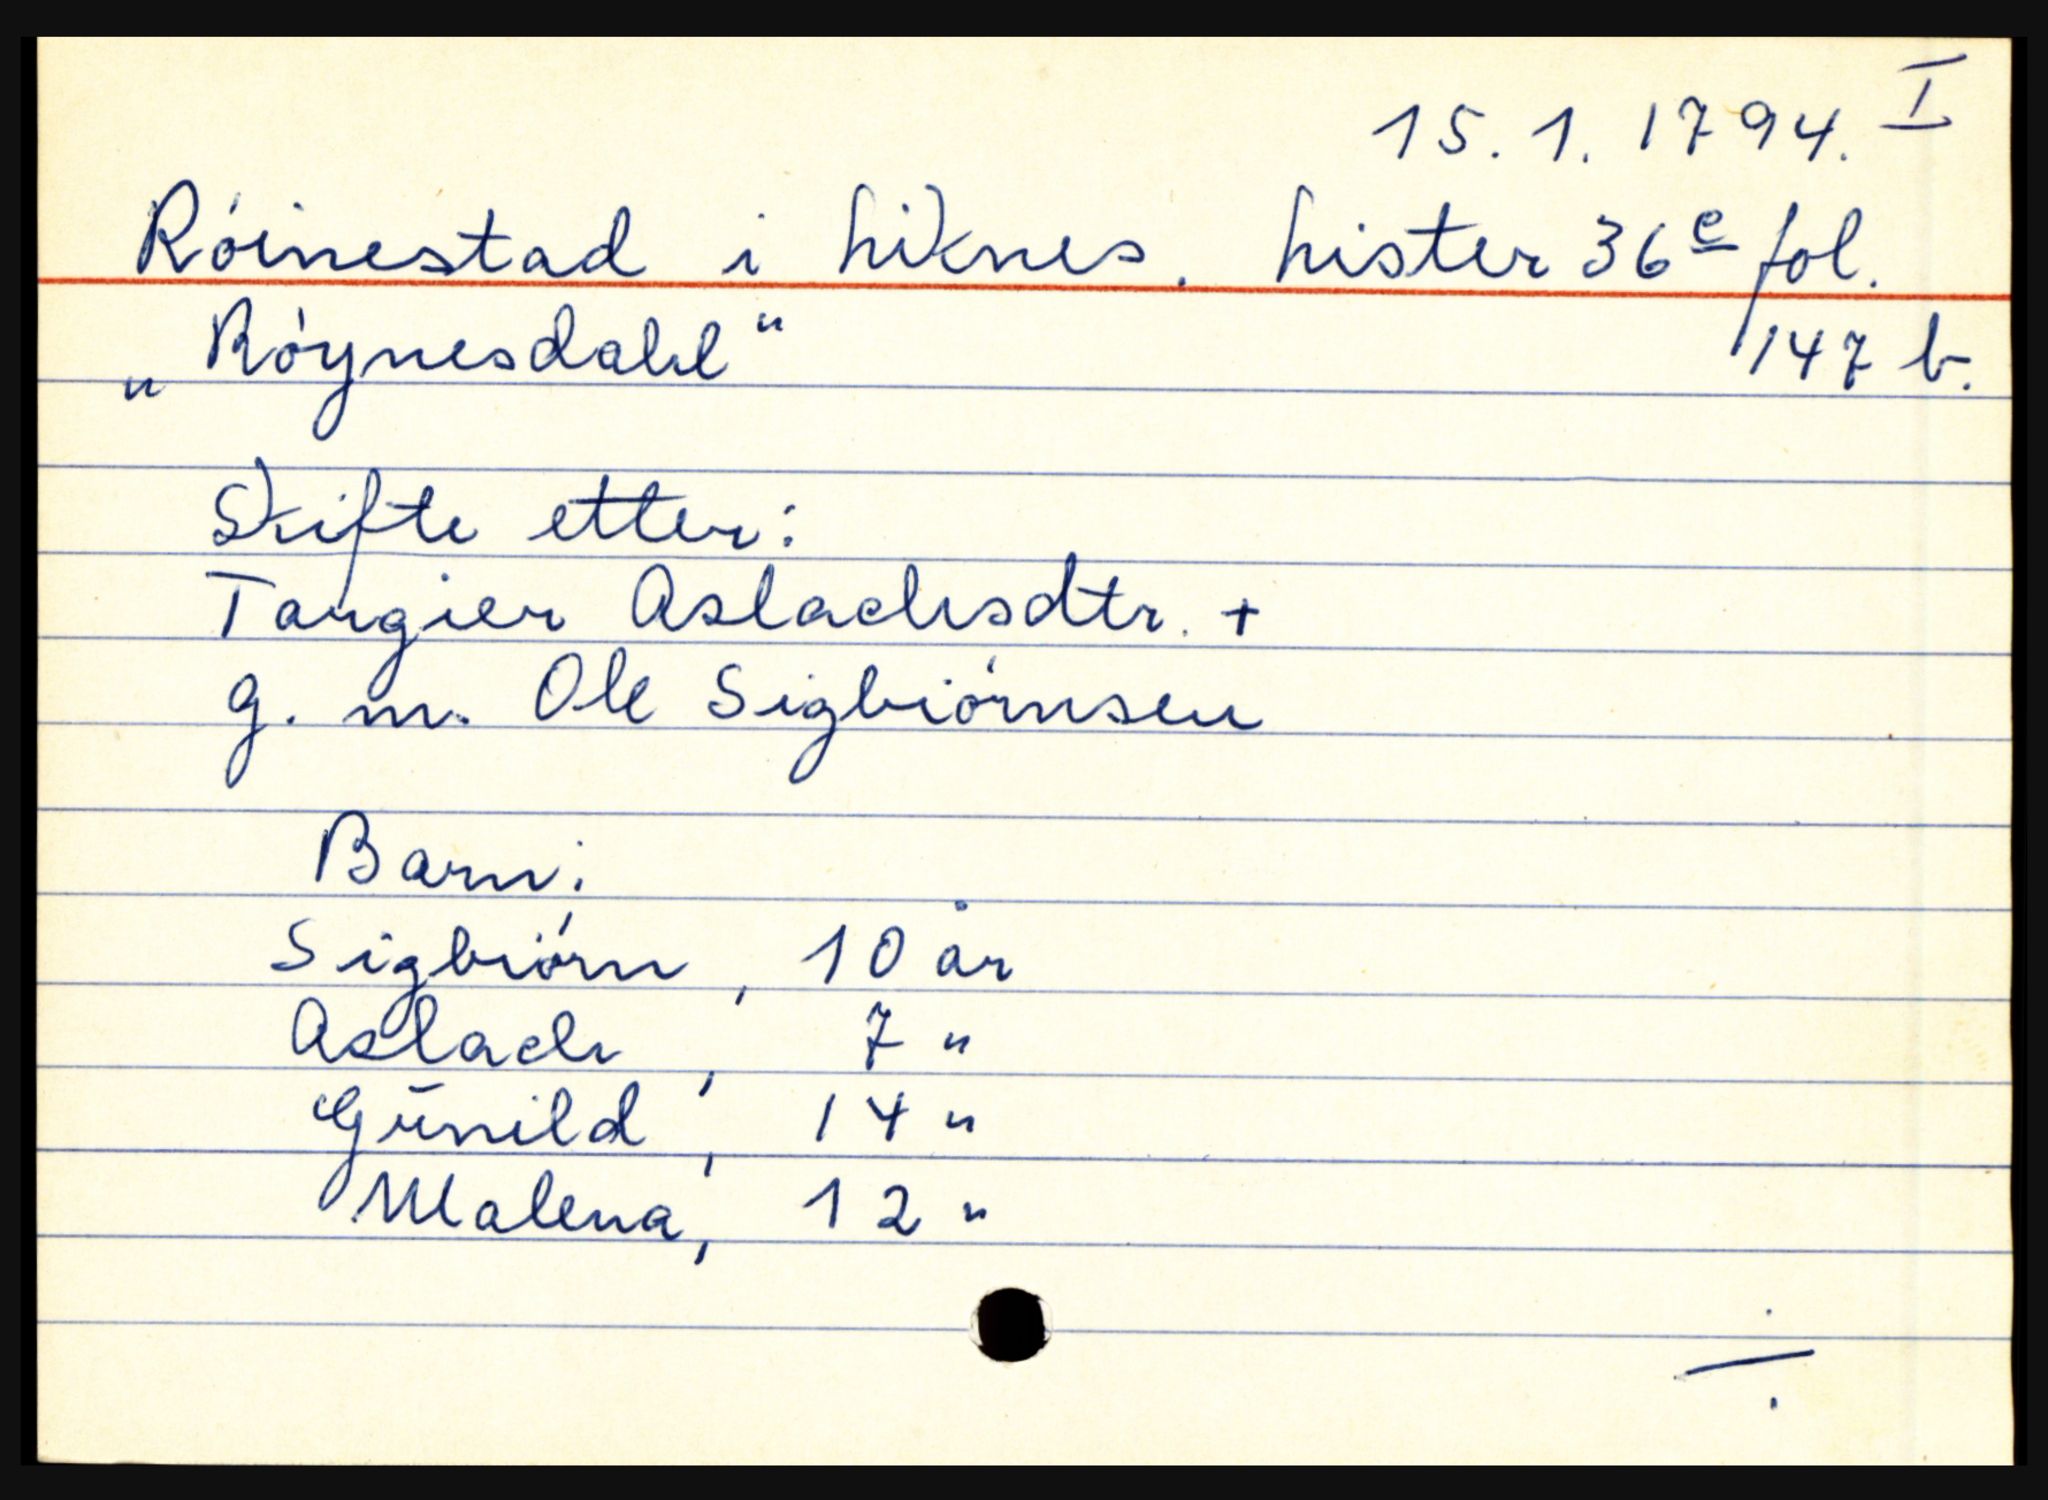 15.1.1794. I
Róinestad i Liknes. Lister 36e fol.
„Róynesdahl“ 147 b.
Skifte etter:
Tangier Aslachsdtr. +
g. m. Ole Sigbiórnsen
Barn:
Sigbiórn, 10 år
Aslach, 7 "
Gūnild, 14 "
Malena, 12 "
÷